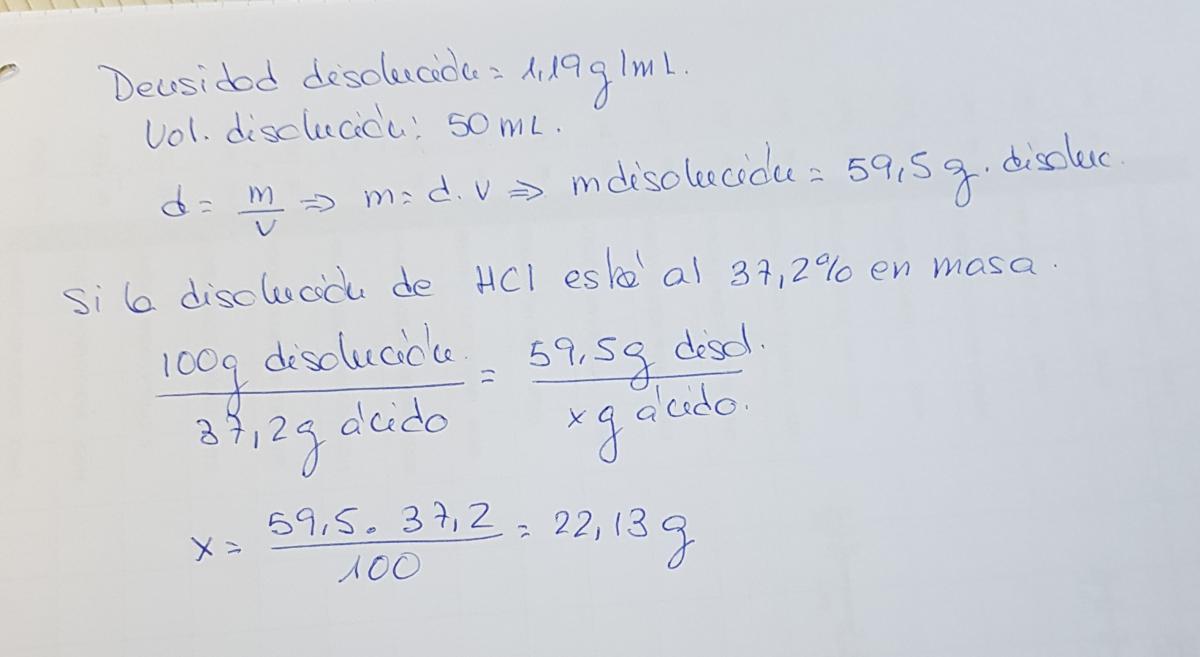 Densidad disolución = 1,19 g/mL.
Vol. disolución: 50 mL.
d = m/v ⇒ m = d. v ⇒ m disolución = 59,5 g. disoluc.
Si la disolución de HCl está al 37,2% en masa.
100g disolución / 37,2g ácido = 59,5g disol. / x g ácido.
x = 59,5. 37,2 / 100 = 22,13 g